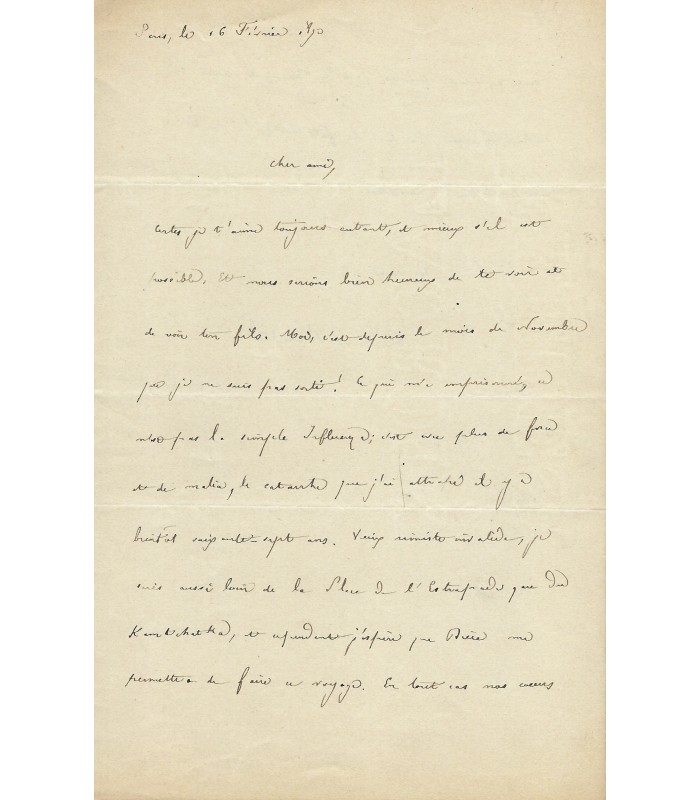 Paris, le 16 Février 1890
cher ami,
Certes je t'aime toujours autant, et mieux s'il est
possible. Et nous serions bien heureux de te voir et
de voir ton fils. Moi, c'est depuis le mois de Novembre
que je ne suis pas sorti! Ce qui m'a emprisonné, ce
n'est pas la simple Influenza; c'est avec plus de force
et de malice, le catarrhe que j'ai attaché il y a
bientôt soixante-sept ans. Vieux rimiste invalide, je
suis aussi loin de la Place de l'Estrapade que du
Kamtchatka, et cependant j'espère que Dieu me
permettra de faire ce voyage. En tout cas nos cœurs